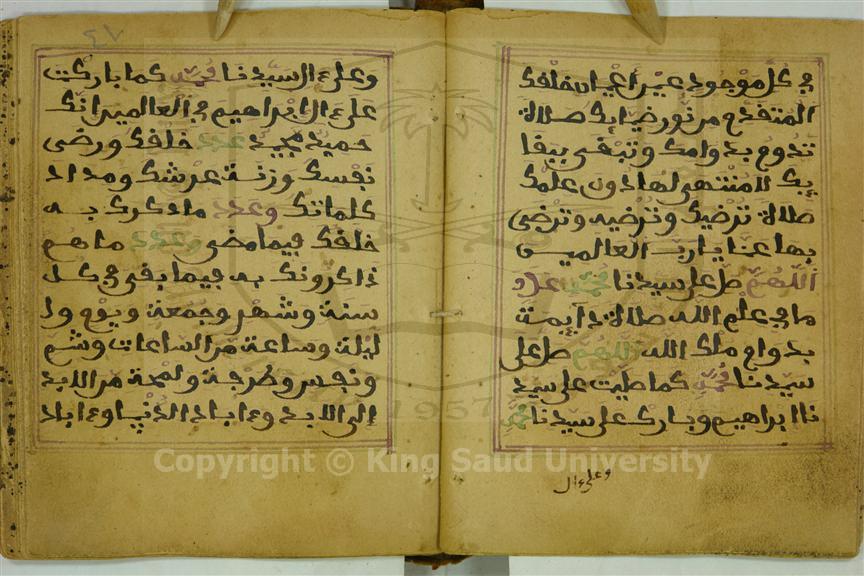 في كل موجود عين أعيان خلقك
المتقدم من نور ضيائك صلاة
تدوم بدوامك وتبقى ببقا
ئك لا منتهى لها دون علمك
صلاة ترضيك وترضيه وترضى
بها عنا يا رب العالمين
اللهم صل على سيدنا محمد عدد
ما في علم الله صلاة دايمة
بدوام ملك الله اللهم صل على
سيدنا محمد كما صليت على سيد
نا ابراهيم وبارك على سيدنا محمد
وعلى ءال
٤٧
وعلى ءال سيدنا محمد كما باركت
على ءال ابراهيم في العالمين انك
حميد مجيد عدد خلقك ورضى
نفسك وزنة عرشك ومداد
كلماتك وعدد ما ذكرك به
خلقك فيما مضى وعدد ما هم
ذاكرونك به فيما بقى في كل
سنة وشهر وجمعة ويوم ول
ليلة وساعة من الساعات وشم
ونفس وطرفة ولمحة من الابد
الى الابد وءاباد الدنيا وءاباد
1957
Copyright © King Saud University